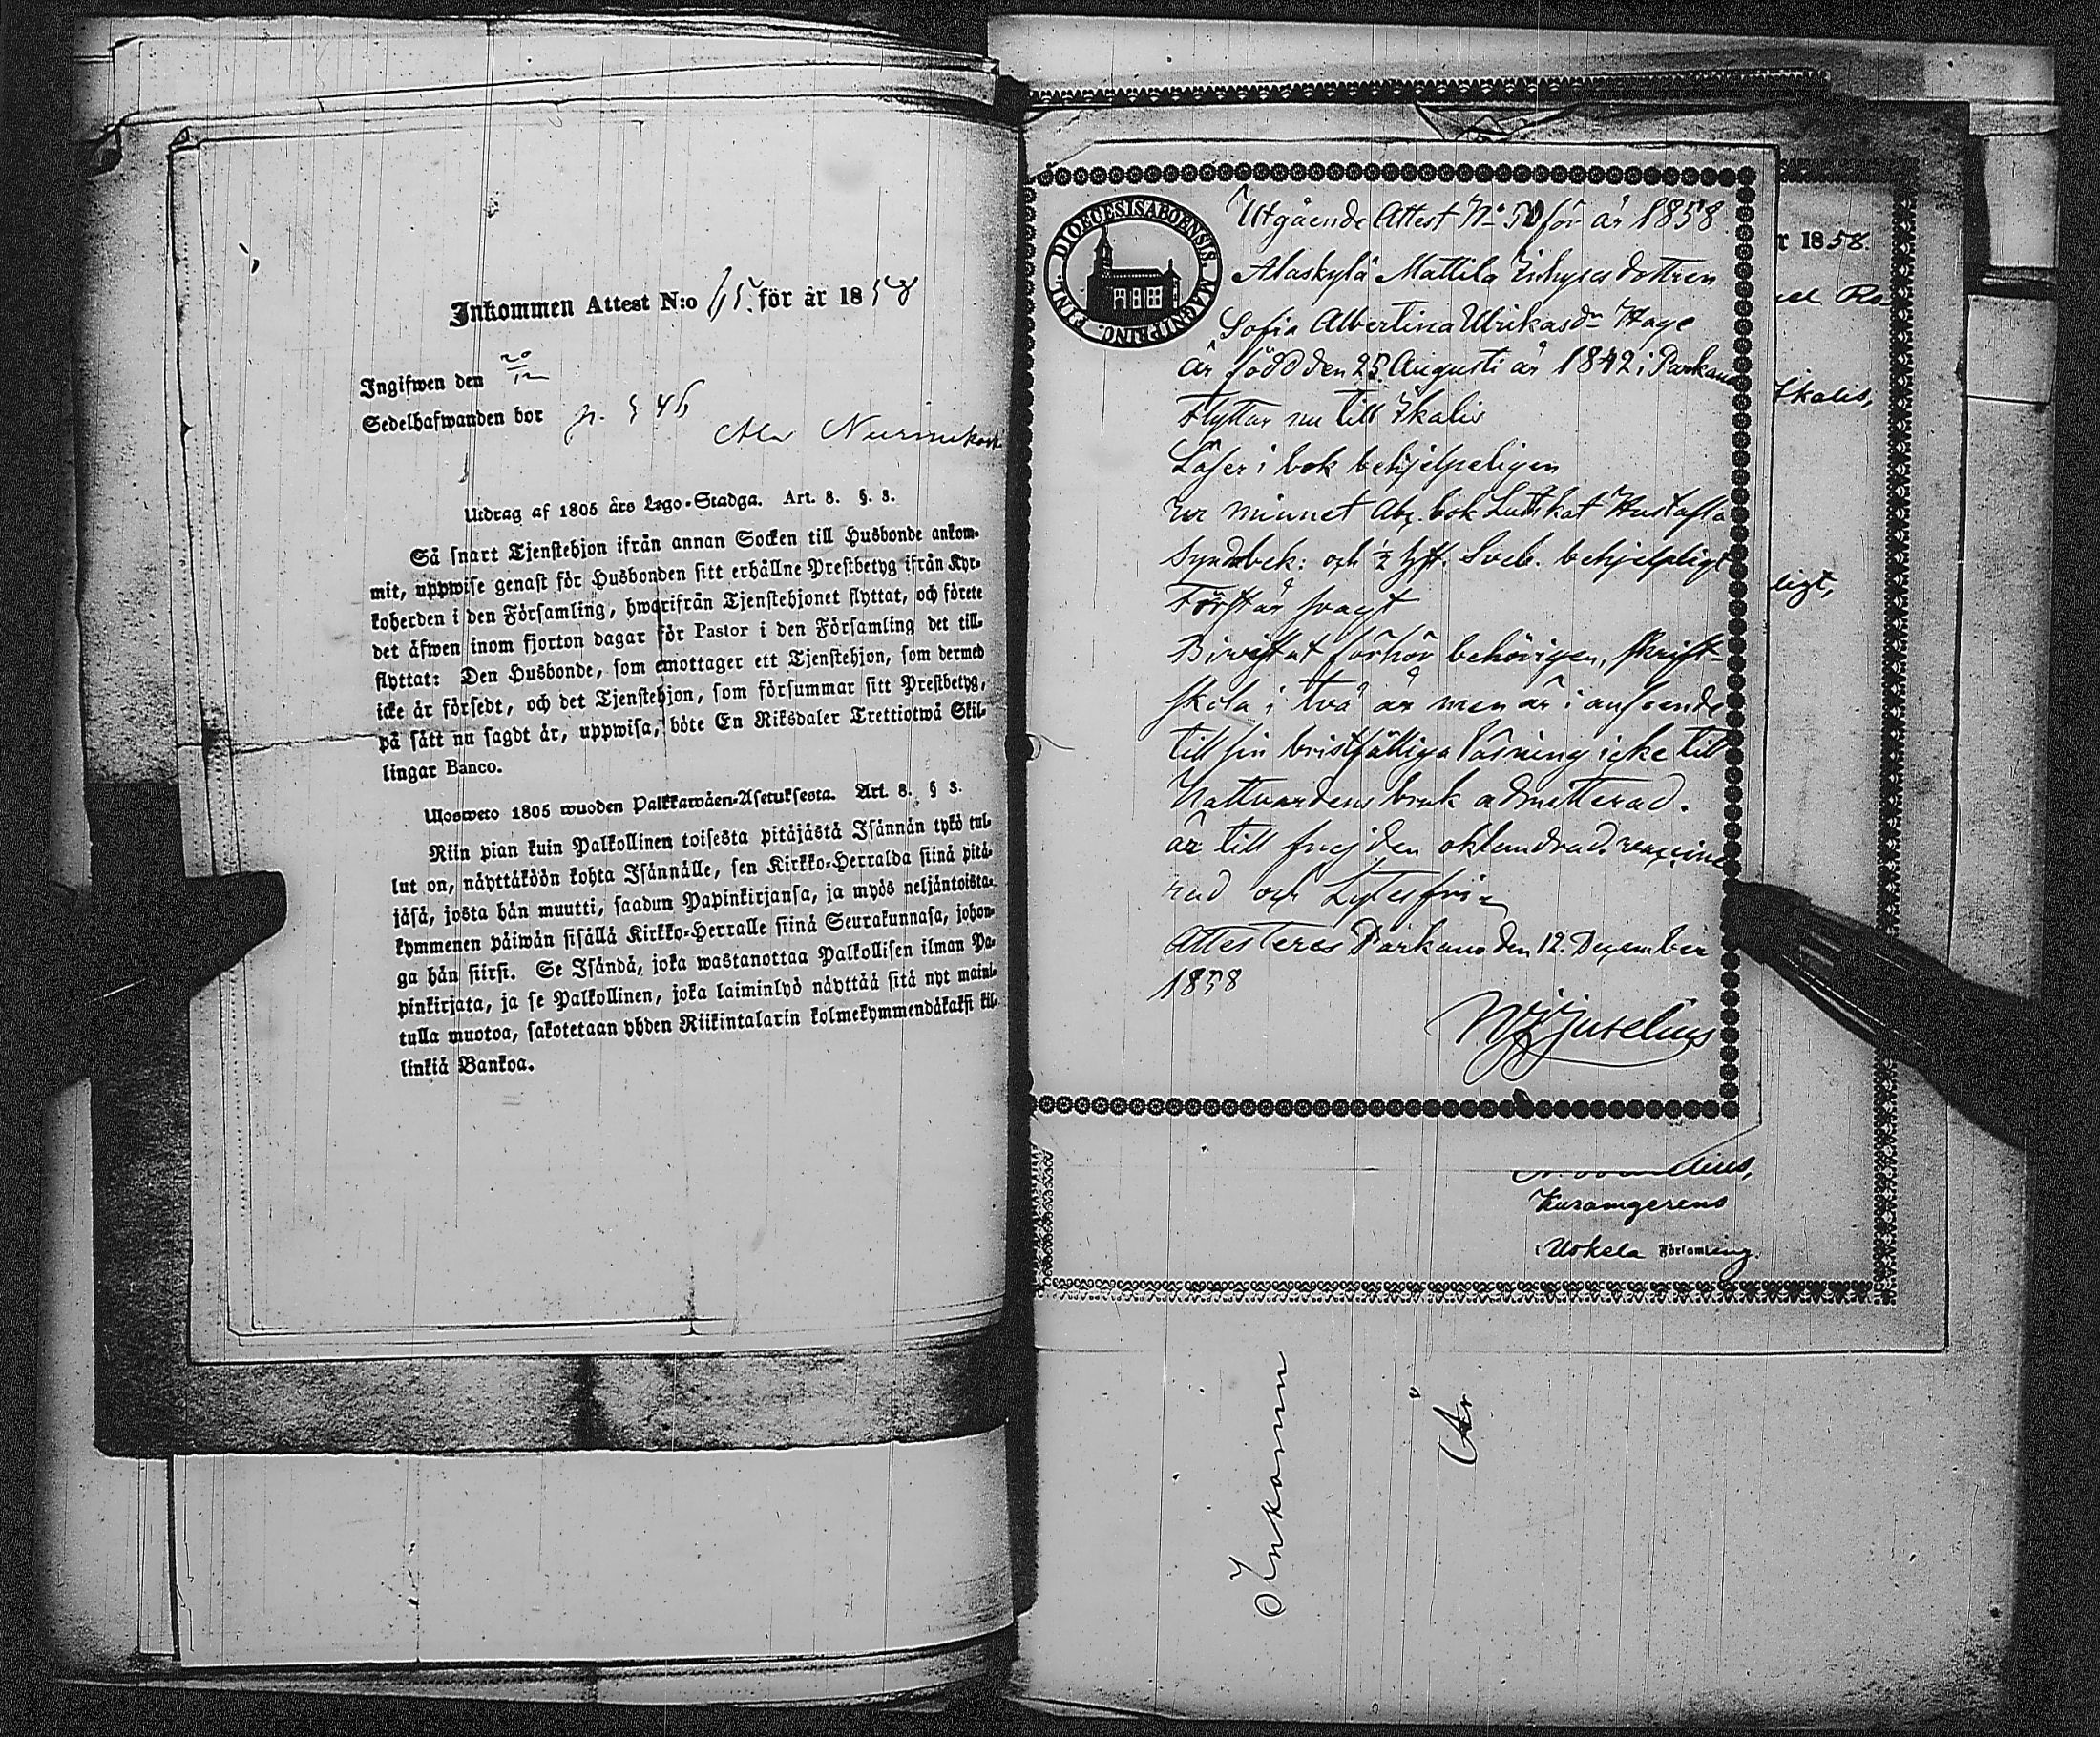 Inkommen Attest N:o 65. för år 1858
Ingifwen den 20/12
Sedelhafwanden bor p. 546
Ala Nurimkoski
Utdrag af 1805 års Lego-Stadga. Art. 8. §. 3.
Så snart Tjenstehjon ifrån annan Socken till Husbonde ankom-
mit, uppwise genast för Husbonden sitt erhållne Prestbetyg ifrån Kyr-
koherden i den Församling, hwarifrån Tjenstehjonet flyttat, och förete
det äfwen inom fjorton dagar för Pastor i den Församling det till-
flyttat: Den Husbonde, som emottager ett Tjenstehjon, som dermed
icke är försedt, och det Tjenstehjon, som försummar sitt Prestbetyg,
på sätt nu sagdt är, uppwisa, böte En Riksdaler Trettiotwå Skil-
lingar Banco.
Ulosweto 1805 wuoden Palkkawäen-Asetuksesta. Art. 8. § 3.
Niin pian kuin Palkollinen toisesta pitäjästä Isännän tykö tul-
lut on, näyttäköön kohta Isännälle, sen Kirkko-Herralda siinä pitä-
jäsä, josta hän muutti, saadun Papinkirjansa, ja myös neljäntoista-
kymmenen päiwän sisällä Kirkko-Herralle siinä Seurakunnasa, johon-
ga hän siirsi. Se Isändä, joka wastanottaa Palkollisen ilman Pa-
pinkirjata, ja se Palkollinen, joka laiminlyö näyttää sitä nyt maini-
tulla muotoa, sakotetaan yhden Riikintalarin kolmekymmendäkaksi kil-
linkiä Bankoa.
DIOECESIS ABOENSIS. MAGNI PRINC. FINL.
Utgående Attest No 50 för år 1858.
Alaskylä Mattila Inhyses dottren
Sofia Albertina Ulrikasdr Hage
är född den 25. Augusti år 1842 i Parkano
Flyttar nu till Ikalis
Läser i bok behjelpeligen
ur minnet Abc. bok Luth kat Hustafla
Syndabek: och ½ hft. Sveb. behjelpligt
Förstår svagt
Bivistat förhör behörigen, skrift-
skola i två år men är i anseende
till sin bristfälliga läsning icke till
Nattvardens bruk admitterad.
är till frejden oklandrad. vaccine-
rad och Lytesfri
Attesteras Parkano den 12. December
1858
Juselius
r 1858.
Ikalis,
ligt,
lius,
i Uskela Församling.
Inkomm
År